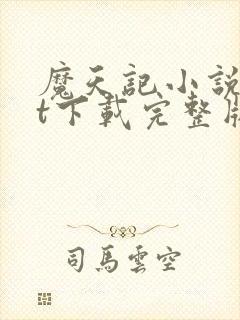 魔天記小說
t下載完整版
司馬雲空